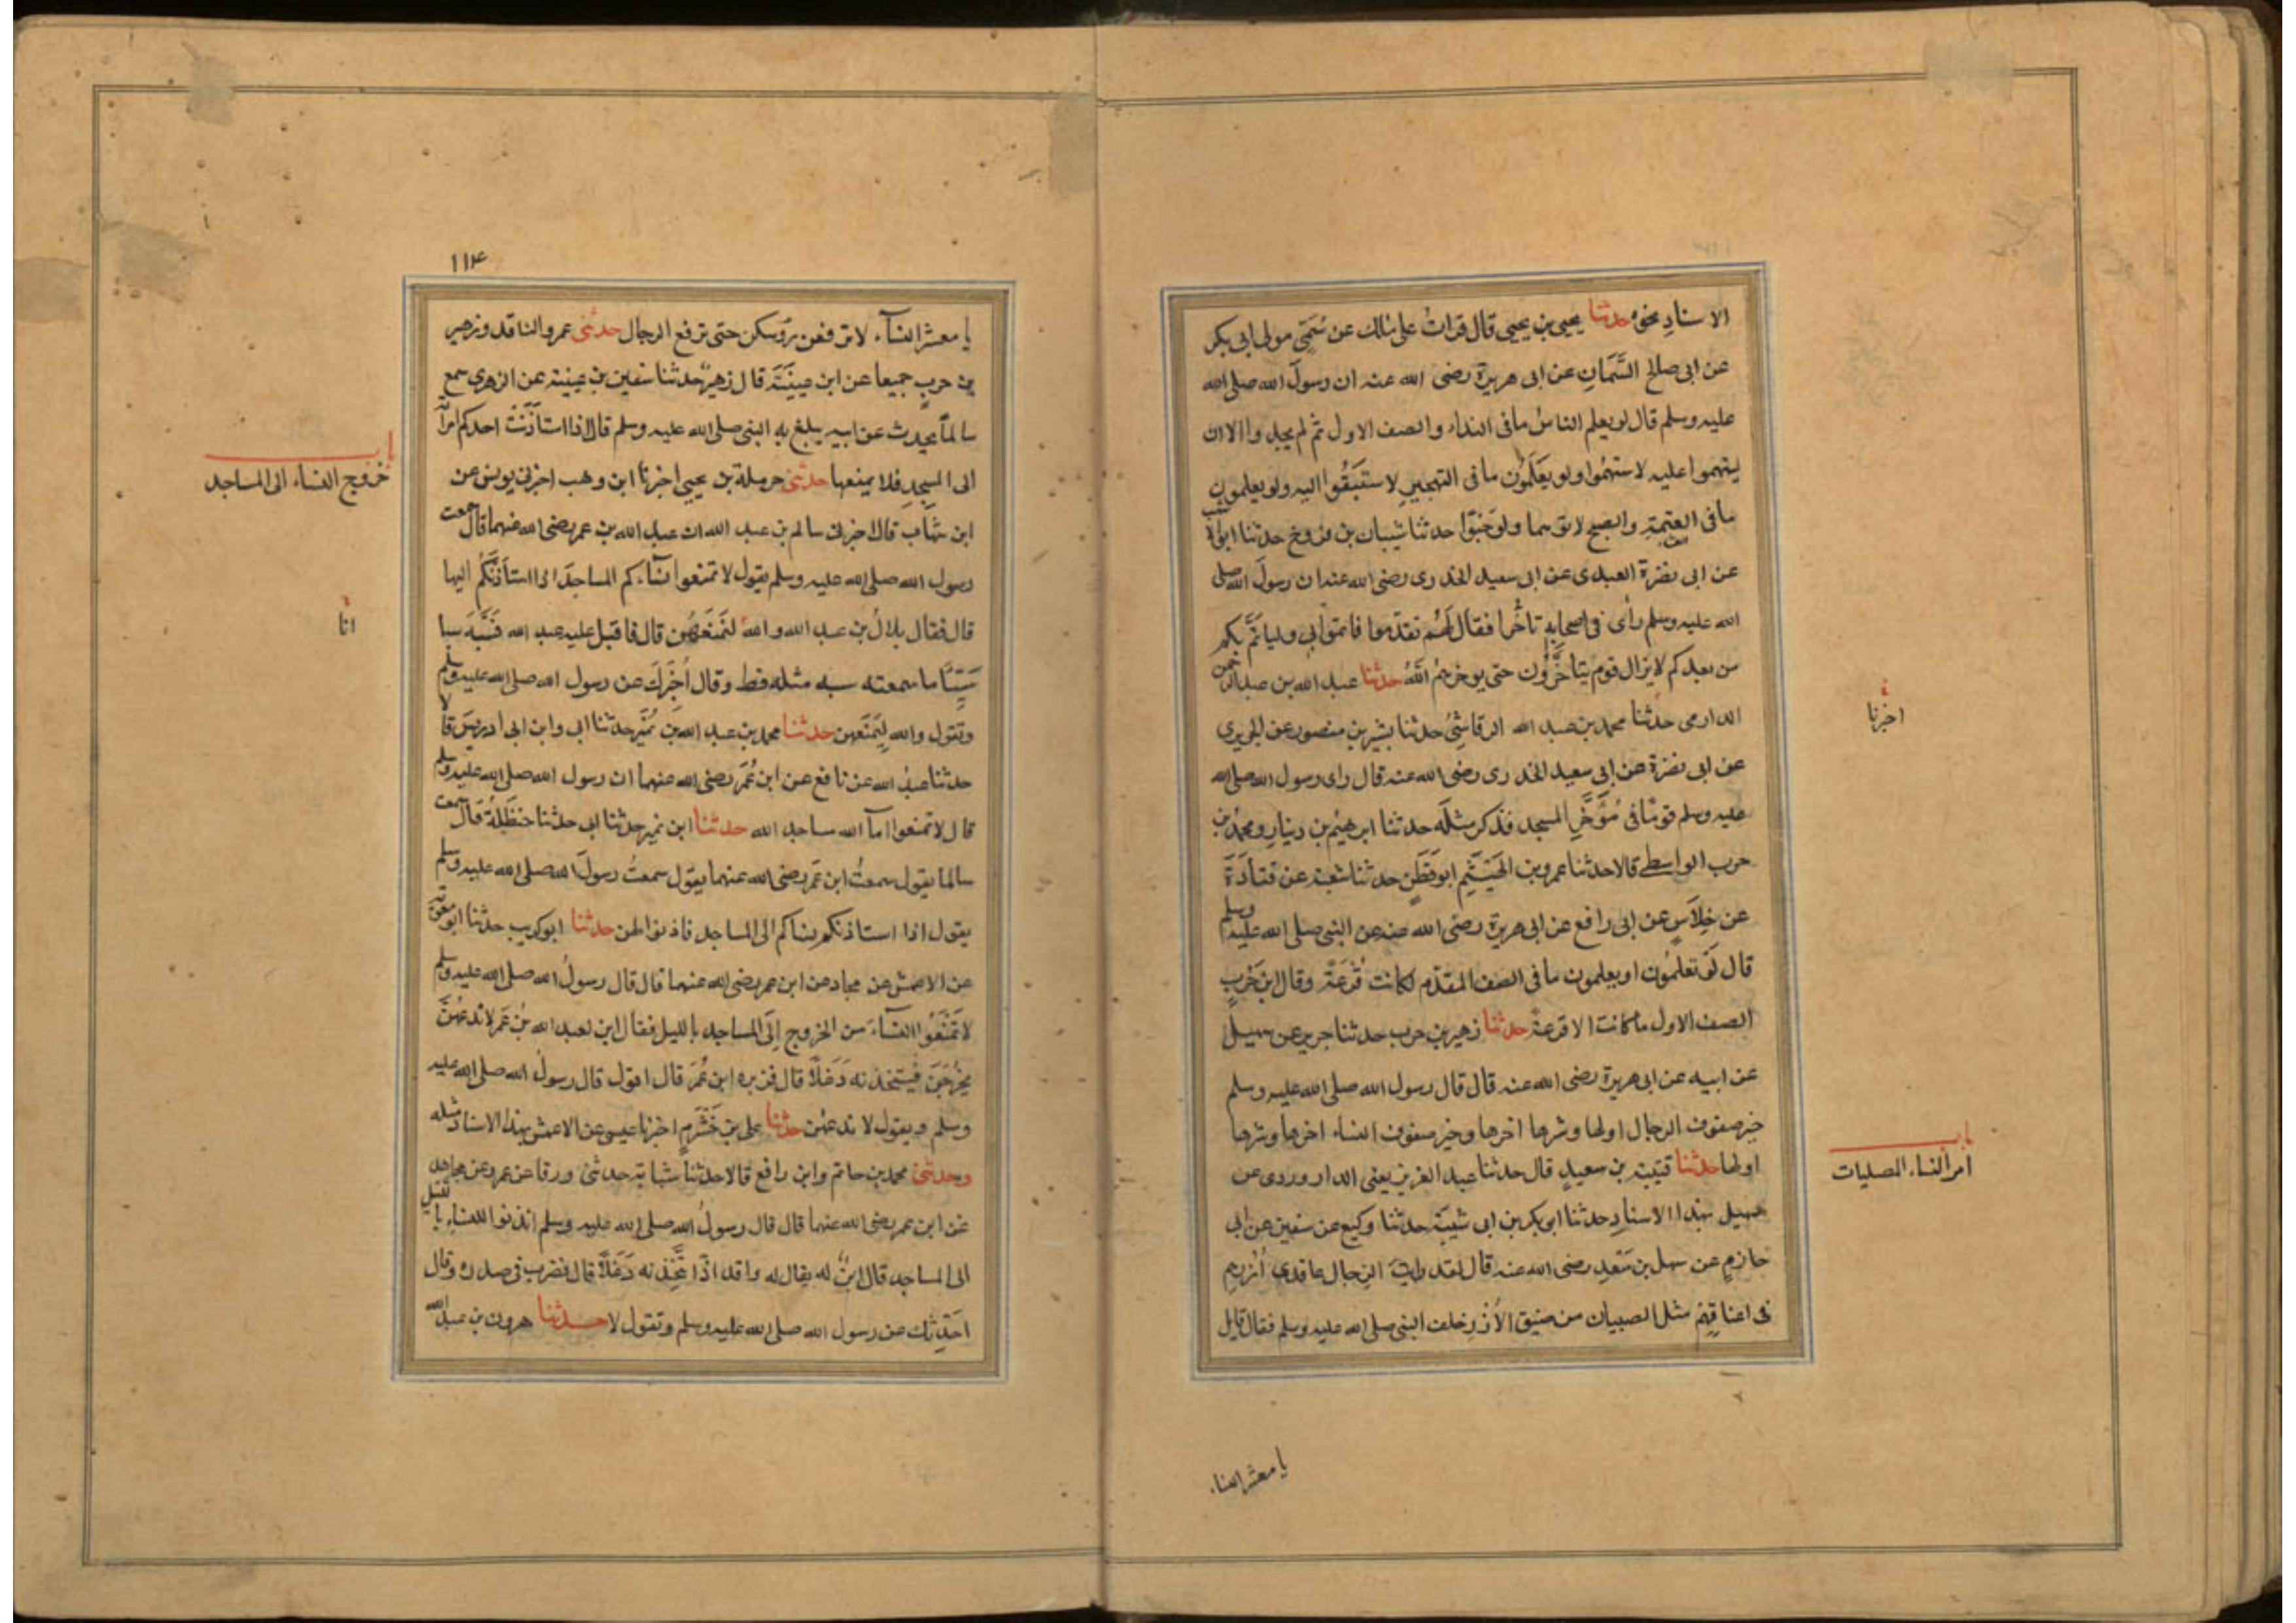 الاسناد نحوه حدثنا يحيى بن يحيى قال قرات على مالك عن سُمَيّ مولى ابى بكر
عن ابى صالح السَّمَّانِ عن ابى هريرة رضى الله عنه ان رسولَ الله صلى الله
عليه وسلم قال لو يعلم الناسُ ما فى النداء والصف الاول ثم لم يجدوا الا ان
يستهموا عليه لاستهمُوا ولو يعَلَمُون ما فى التهجيرِ لاستَبَقُوا اليه ولو يعلمون
ما فى العتمةِ والصبح لاتوهما ولو حَبْوًا حدثنا شيبان بن فروخ حدثنا ابو الاشهب
عن ابى نضرة العبدى عن ابى سعيد الخدرى رضى الله عنه ان رسولَ الله صلى
الله عليه وسلم رأى فى اصحابِهِ تاخُّرا فقال لَهُم تقدّموا فاتموا بى وليا تَمَّ بكم
من بعدكم لا يزال قوم يتأخَّرُون حتى يوخرهُم اللّهُ حدثنا عبد الله بن عبد الرحمن
الدارمى حدثنا محمد بن عبد الله الرقاشِيُّ حدثنا بشر بن منصور عن الجريرى
عن ابى نضرة عن ابى سعيد الخدرى رضى الله عنه قال راى رسول الله صلى الله
عليه وسلم قومًا فى مُؤَخَّرِ المسجد فذكر مثلَه حدثنا ابرهيم بن دينارٍ ومحمدُ بن
حرب الواسطى قالا حدثنا عمرو بن الهَيْثَمِ ابو قَطَنٍ حدثنا شعبة عن قتادَةَ
عن خِلَاسٍ عن ابى رافع عن ابى هريرة رضى الله عنه عن النبى صلى الله عليه وسلم
قال لَو تعلمُون او يعلمون ما فى الصف المقدّم لكانت قُرعَةً وقال ابن حَرْبٍ
الصف الاول ما كانت الا قرعة حدثنا زهير بن حرب حدثنا جرير عن سهيل
عن ابيه عن ابى هريرة رضى الله عنه قال قال رسول الله صلى الله عليه وسلم
خير صفوف الرجال اولها وشرها اخرها وخير صفوف النساء اخرها وشرها
اولها حدثنا قتيبة بن سعيدٍ قال حدثنا عبد العزيز يعنى الداروردى عن
سهيل بهذا الاسنادِ حدثنا ابو بكر بن ابى شيبَة حدثنا وكيع عن سفين عن ابى
حازمٍ عن سهل بن سَعْدٍ رضى الله عنه قال لقد رايت الرجال عاقدى اُزُرِهِم
فى اعناقِهِم مثل الصبيان من ضيق الأُزرِ خلف النبى صلى الله عليه وسلم فقال قايل
اخبرنا
باب
امر النساء المصليات
يا معشر النساء
١١۴
يا معشر النسآء لا ترفعن روسكن حتى ترفع الرجال حدثنى عمرو الناقد وزهير
بن حربٍ جميعا عن ابن عيينَةَ قال زهيرٌ حدثنا سفين بن عيينة عن الزهرى سمع
سالماً يحدث عن ابيه يبلغ به النبى صلى الله عليه وسلم قال اذا استاذَنَتْ احدكم امرأته
الى المسجِدِ فلا يمنعها حدثنى حرملة بن يحيى اخبرنا ابن وهب اخبرنى يونس عن
ابن شهاب قال اخبرنى سالم بن عبد الله ان عبد الله بن عمر رضى الله عنهما قال سمعت
رسول الله صلى الله عليه وسلم يقول لا تمنعوا نساءكم المساجدَ اذا استأذَنَّكُم اليها
قال فقال بلالُ بن عبد الله والله لنَمْنَعَهُن قال فاقبل عليه عبد الله فَسَبَّهَ سبا
سَيِّئًا ما سمعته سبه مثله قط وقال اُخبِرُكَ عن رسول الله صلى الله عليه وسلم
وتقول والله لنَمنَعهن حدثنا محمد بن عبد الله بن نُمَيرٍ حدثنا ابى وابن ابى ادريسَ قالا
حدثنا عبيدُ الله عن نافع عن ابن عُمَرَ رضى الله عنهما ان رسول الله صلى الله عليه وسلم
قال لا تمنعوا امآ الله مساجد الله حدثنا ابن نمير حدثنا ابى حدثنا حنظَلَةُ قال سمعت
سالما يقول سمعتُ ابن عمَر رضى الله عنهما يقول سمعتُ رسولَ الله صلى الله عليه وسلم
يقول اذا استاذنكم نساكم الى المساجد فاذنوا لهن حدثنا ابو كريب حدثنا ابو معوية
عن الاعمش عن مجاهد عن ابن عمر رضى الله عنهما قال قال رسولُ الله صلى الله عليه وسلم
لا تَمْنَعُوا النسآءَ من الخروج إلَى المساجد بالليل فقال ابن لعبد الله بن عمَر لا ندعهُنَّ
يخْرُجَنَ فيتخذنه دَغَلاً قال فزبره ابن عُمَرَ قال اقول قال رسولُ الله صلى الله عليه
وسلم ويقول لا ندعهُن حدثنا على بن خَشْرَمٍ اخبرنا عيسى عن الاعمش بهذا الاسناد مثله
وحدثنى محمد بن حاتم وابن رافع قالا حدثنا شبابة حدثنى ورقا عن عمرو عن مجاهد
عن ابن عمر رضى الله عنهما قال قال رسولُ الله صلى الله عليه وسلم ائذنوا للنساء بالليل
الى المساجد قال ابنٌ له يقال له واقد اذًا يتَّخِذنه دَغَلاً قال فضرب فى صدره وقال
احَدِّثك عن رسول الله صلى الله عليه وسلم وتقول لا حدثنا هرون بن عبد الله
باب
خروج النساء الى المساجد
انا